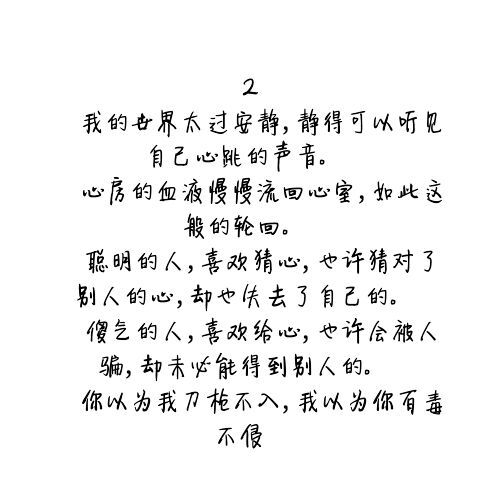 2
我的世界太过安静,静得可以听见
自己心跳的声音。
心房的血液慢慢流回心室,如此这
般的轮回。
聪明的人,喜欢猜心,也许猜对了
别人的心,却也失去了自己的。
傻气的人,喜欢给心,也许会被人
骗,却未必能得到别人的。
你以为我刀枪不入,我以为你百毒
不侵